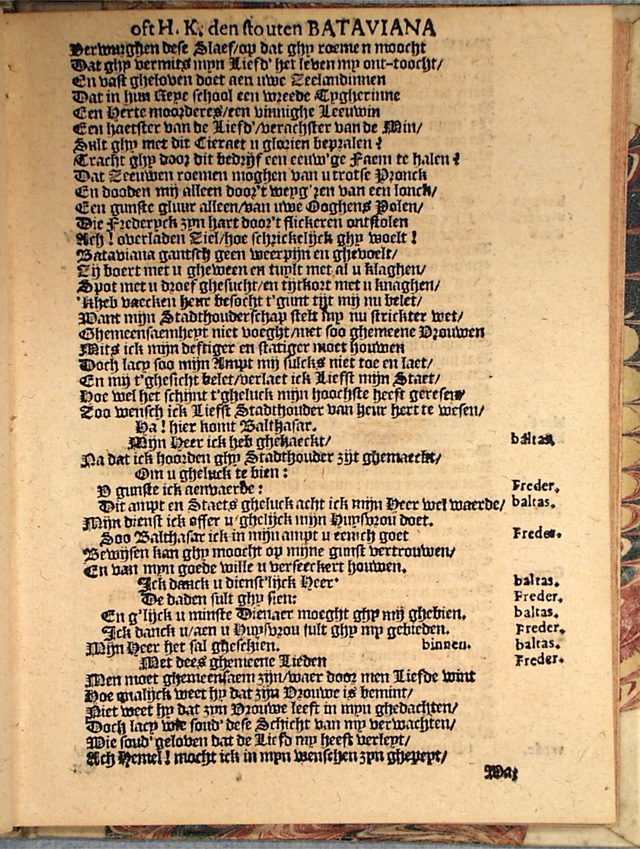 oft H. K. den stouten BATAVIANA
Verwurghen dese Slaef/op dat ghy roemen moocht
Dat ghy vermits mijn Liefd' het leven my ont-toocht/
En vast gheloven doet aen uwe Zeelandinnen
Dat in hun Keye school een wreede Tygherinne
Een Herte moorderes/een vinnighe Leeuwin
Een haetster van de Liefd'/verachtster van de Min/
Sult ghy met dit Cieraet u glorien bepralen?
Tracht ghy door dit bedrijf een eeuw'ge Faem te halen?
Dat Zeeuwen roemen moghen van u trotse Pronck
En dooden mij alleen door't weyg'ren van een lonck/
Een gunste gluur alleen/van uwe Ooghens Polen/
Die Frederyck zyn hart door't flickeren ontstolen
Ach! overladen Ziel/hoe schrickelijck ghy woelt!
Bataviana gantsch geen weerpijn en ghevoelt/
Zij boert met u gheween en tuylt met al u klaghen/
Spot met u droef ghesucht/en tijtkort met u knaghen/
'Kheb vaecken heur besocht t'gunt tijt mij nu belet/
Want mijn Stadthouderschap stelt my nu strickter wet/
Ghemeensaemheyt niet voeght/met soo ghemeene Vrouwen
Mits ick mijn deftiger en statiger moet houwen
Doch lacy soo mijn Ampt mij sulcks niet toe en laet/
En mij t'ghesicht belet/verlaet ick Liefst mijn Staet/
Hoe wel het schijnt t'gheluck mijn hoochste heeft geresen/
Zoo wensch ick Liefst Stadthouder van heur hert te wesen/
Ha! hier komt Balthasar.
Mijn Heer ick heb ghehaeckt/ baltas.
Na dat ick hoorden ghy Stadthouder zijt ghemaeckt/
Om u gheluck te bien:
V gunste ick aenvaerde: Freder.
Dit ampt en Staets gheluck acht ick mijn Heer wel waerde/ baltas.
Mijn dienst ick offer u/ghelijck mijn Huysvrou doet.
Soo Balthasar ick in mijn ampt u eenich goet Freder.
Bewijsen kan ghy moocht op mijne gunst vertrouwen/
En van myn goede wille u verseeckert houwen.
Ick danck u dienst'lijck Heer baltas.
De daden sult ghy sien: Freder.
En g'lijck u minste Dienaer moeght ghy mij ghebien. baltas.
Ick danck u/aen u Huysvrou sult ghy my gebieden. Freder.
Mijn Heer het sal gheschien. binnen. baltas.
Met dees ghemeene Lieden Freder.
Men moet ghemeensaem zijn/waer door men Liefde wint
Hoe qualijck weet hy dat zijn Vrouwe is bemint/
Niet weet hy dat zyn Vrouwe leeft in myn ghedachten/
Doch lacy wie soud' dese Schicht van my verwachten/
Wie soud' geloven dat de Liefd my heeft verleyt/
Ach Hemel! mocht ick in myn wenschen zyn ghepeyt/
Wat